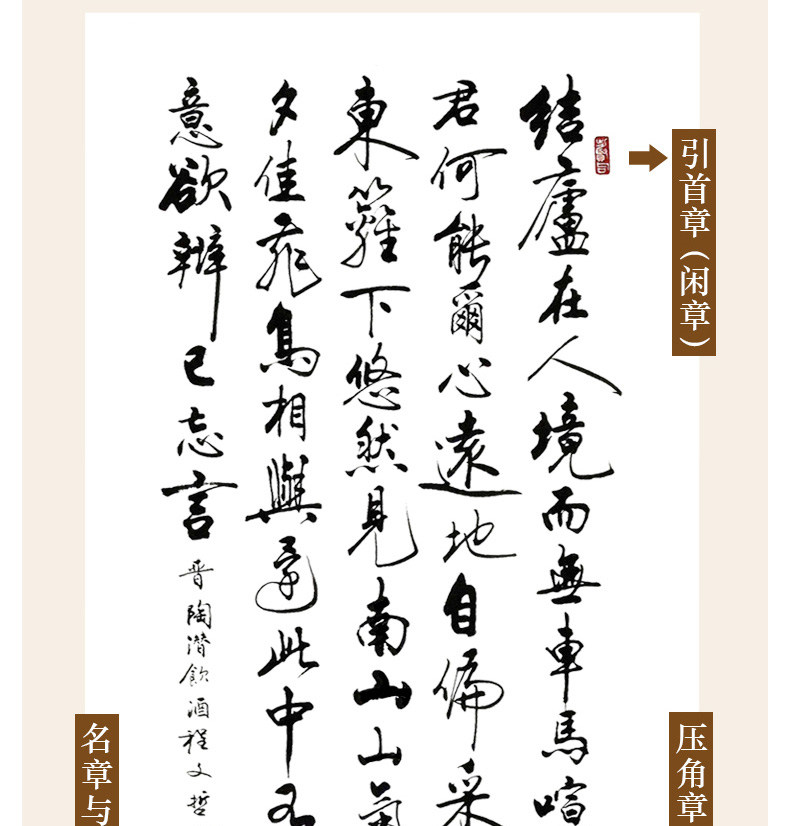 引首章（闲章）
結廬在人境而無車馬喧
君何能爾心遠地自偏采
東籬下悠然見南山山氣
夕佳飛鳥相與還此中有
意欲辨已忘言
晋陶潜飲酒程文哲
压角章
名章与